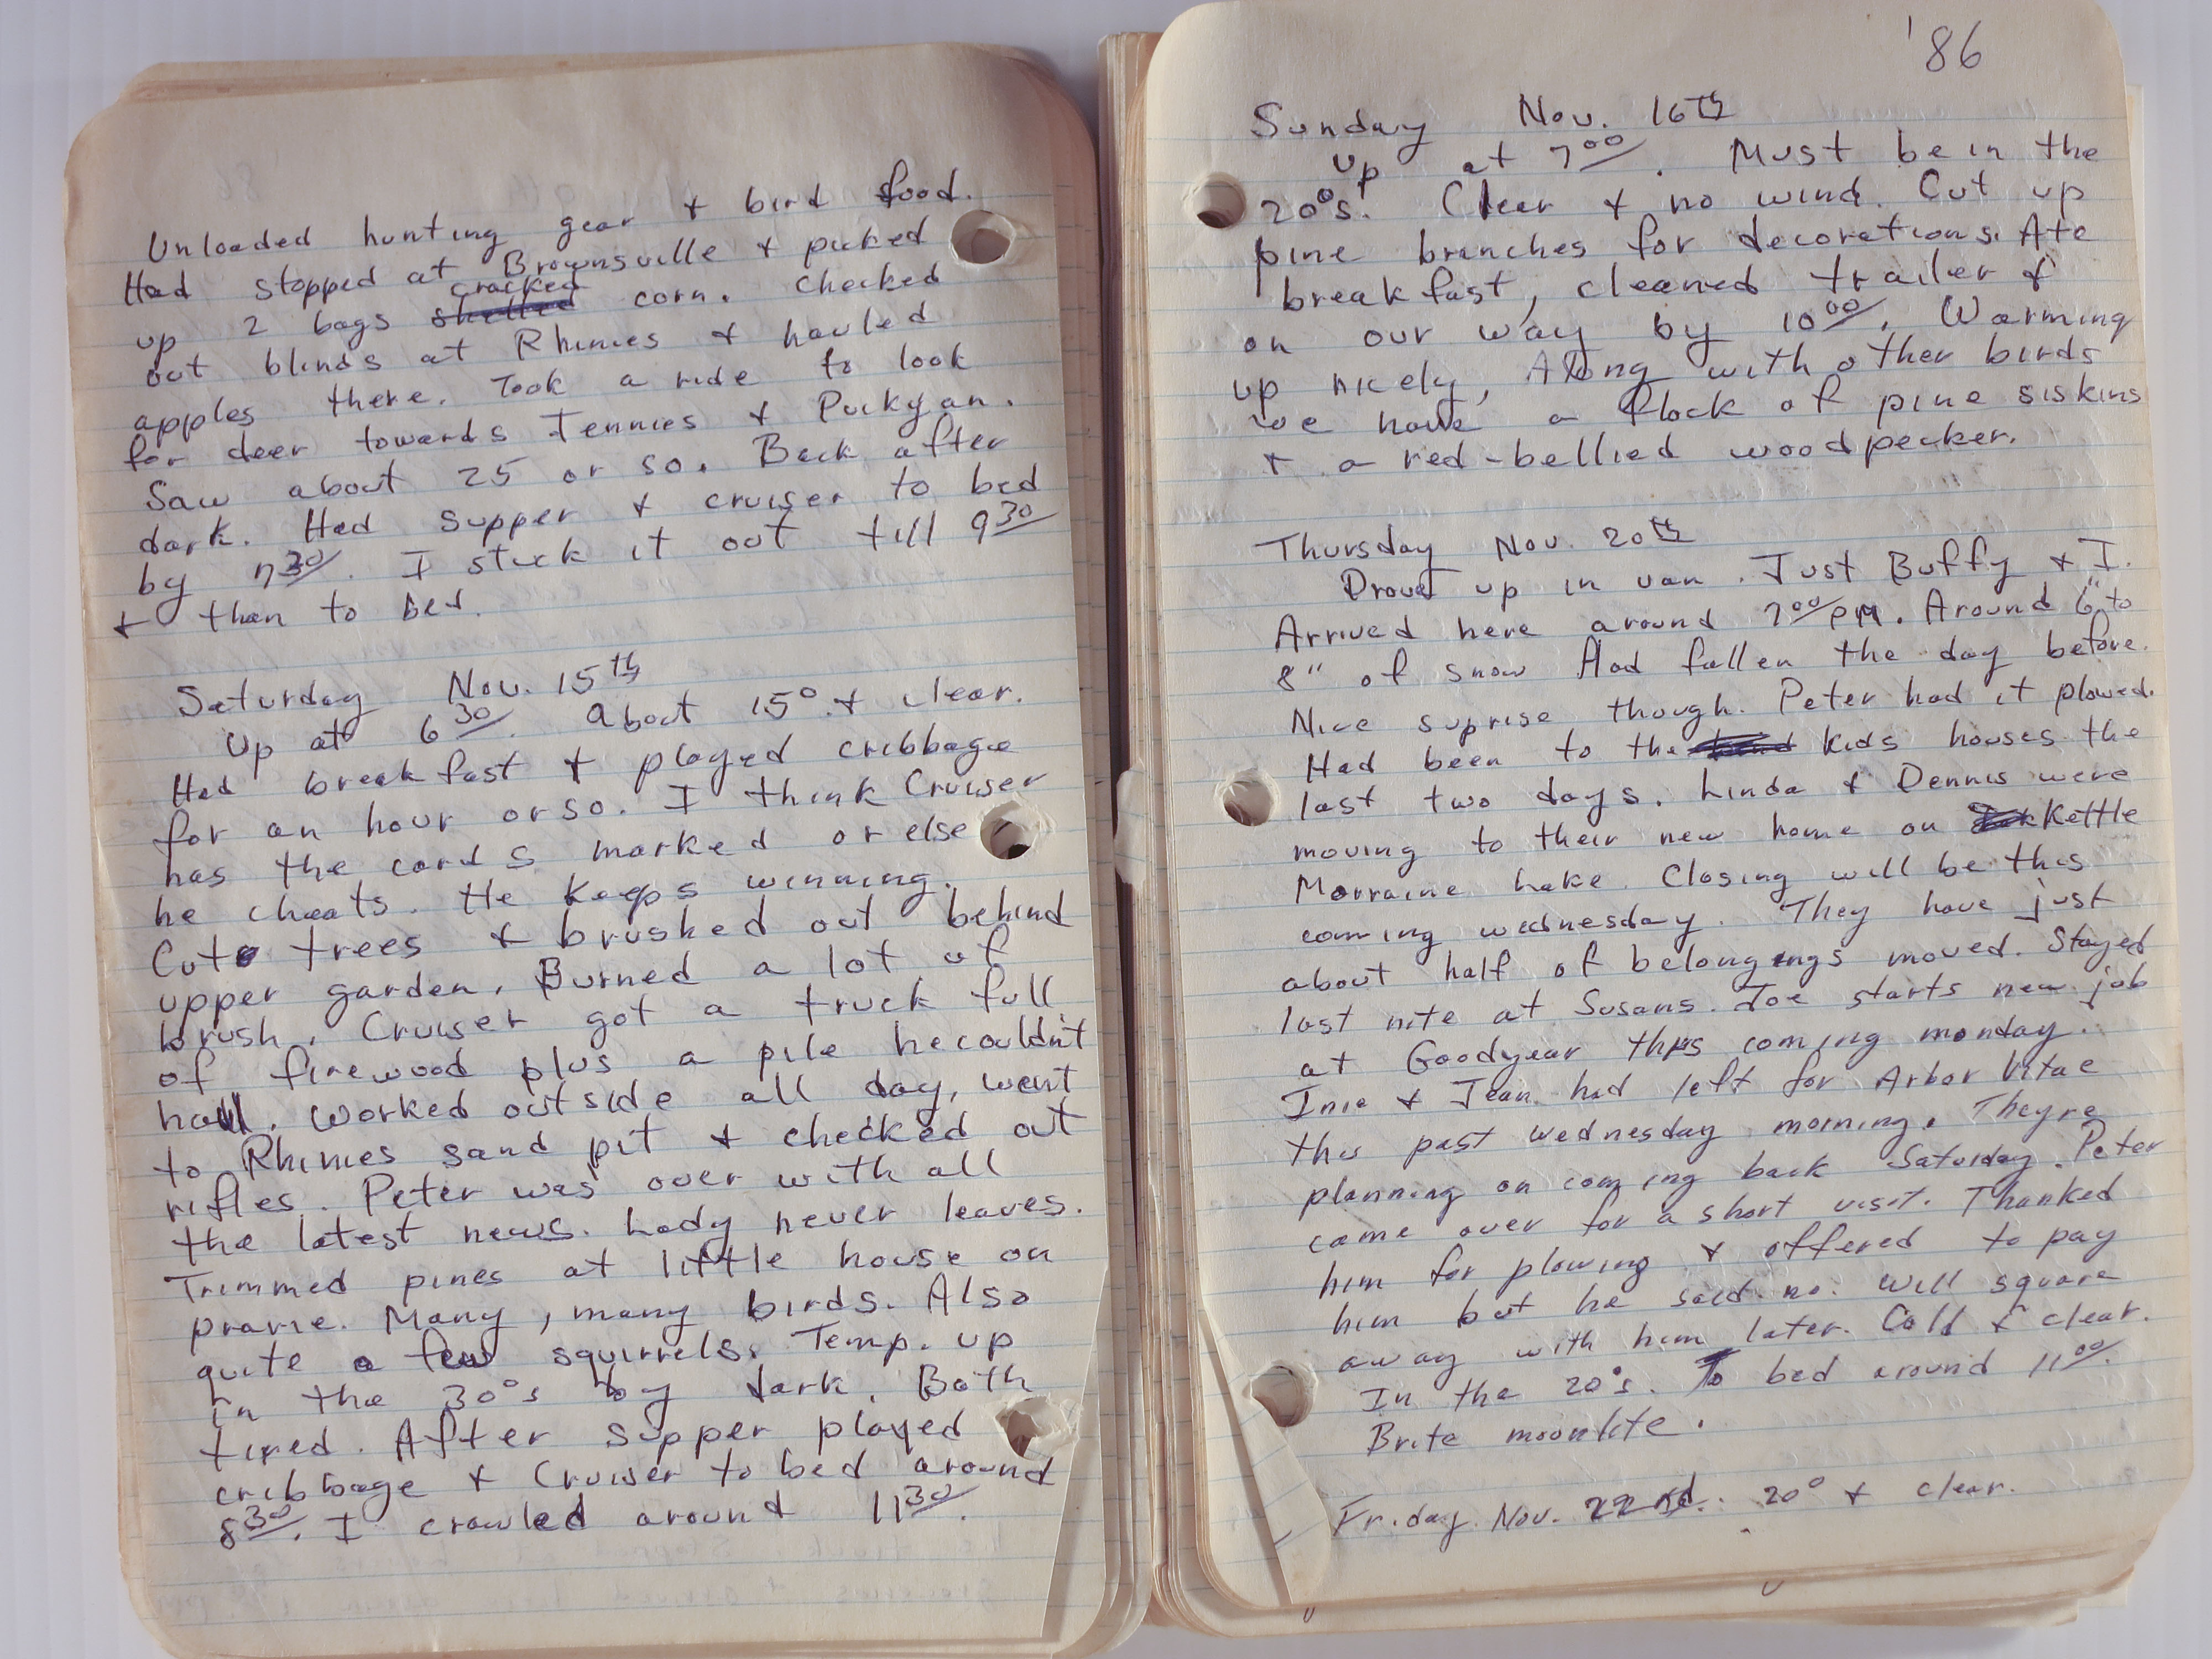 Unloaded hunting gear + bird food.
Had stopped at Brownsville + picked
up 2 bags shelled cracked corn. Checked
out blinds at Rhinies + hauled
apples there. Took a ride to look
for deer towards Jennies + Puckyan.
Saw about 25 or so. Back after
dark. Had supper + cruiser to bed
by 7 30. I stuck it out till 9 30
+ then to bed.
Saturday Nov. 15th
Up at 6 30. About 15° + clear.
Had breakfast + played cribbage
for an hour or so. I think Cruiser
has the cards marked or else
he cheats. He keeps winning.
Cut trees + brushed out behind
upper garden. Burned a lot of
brush. Cruiser got a truck full
of firewood plus a pile he couldn't
haul. Worked outside all day, went
to Rhinies sand pit + checked out
rifles. Peter was over with all
the latest news. Lady never leaves.
Trimmed pines at little house on
prarie. Many, many birds. Also
quite a few squirrels. Temp. up
in the 30°s by dark. Both
tired. After supper played
cribbage + Cruiser to bed around
8 30. I crawled around 11 30.
'86
Sunday Nov. 16th
Up at 7 00. Must be in the
20°s. Clear + no wind. Cut up
pine branches for decorations. Ate
breakfast, cleaned trailer +
on our way by 10 00. Warming
up nicely. Along with other birds
we have a flock of pine siskins
+ a red-bellied woodpecker.
Thursday Nov. 20th
Drove up in van. Just Buffy + I.
Arrived here around 7 00 PM. Around 6" to
8" of snow had fallen the day before.
Nice suprise though. Peter had it plowed.
Had been to the kids houses the
last two days. Linda + Dennis were
moving to their new home on Kettle
Morraine Lake. Closing will be this
coming wednesday. They have just
about half of belongings moved. Stayed
last nite at Susans. Joe starts new job
at Goodyear this coming monday.
Inie + Jean had left for Arbor Vitae
this past wednesday morning. Theyre
planning on coming back Saturday. Peter
came over for a short visit. Thanked
him for plowing + offered to pay
him but he said no. Will square
away with him later. Cold + clear.
In the 20°s. To bed around 11 00.
Brite moonlite.
Friday Nov. 22nd. 20° + clear.